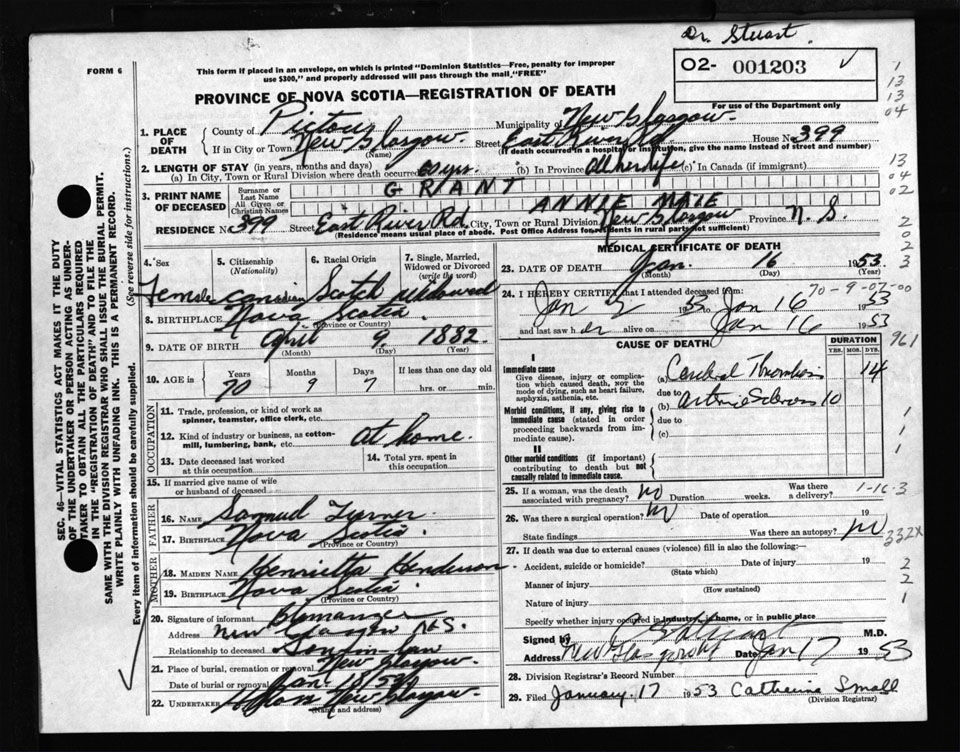 Dr. Stuart.
FORM 6
This form if placed in an envelope, on which is printed "Dominion Statistics—Free, penalty for improper use $300," and properly addressed will pass through the mail, "FREE"
02- 001203 ✓
PROVINCE OF NOVA SCOTIA—REGISTRATION OF DEATH
For use of the Department only
1. PLACE OF DEATH
County of Pictou Municipality of New Glasgow.
If in City or Town New Glasgow. (Name) Street East River Rd House No 399
(If death occurred in a hospital or institution, give the name instead of street and number)
2. LENGTH OF STAY (in years, months and days)
(a) In City, Town or Rural Division where death occurred 60 yrs. (b) In Province All her life (c) In Canada (if immigrant)
3. PRINT NAME OF DECEASED
Surname or Last Name GRANT
All Given or Christian Names ANNIE MAIE
RESIDENCE No 399 Street East River Rd City, Town or Rural Division New Glasgow Province N. S.
(Residence means usual place of abode. Post Office Address for residents in rural parts not sufficient)
4. Sex Female
5. Citizenship (Nationality) Canadian
6. Racial Origin Scotch
7. Single, Married, Widowed or Divorced (write the word) widowed
8. BIRTHPLACE Nova Scotia. (Province or Country)
9. DATE OF BIRTH April 9, 1882 (Month) (Day) (Year)
10. AGE in Years 70 Months 9 Days 7 If less than one day old hrs. or min.
OCCUPATION
11. Trade, profession or kind of work as spinner, teamster, office clerk, etc.
12. Kind of industry or business, as cotton-mill, lumbering, bank, etc. At home.
13. Date deceased last worked at this occupation
14. Total yrs. spent in this occupation
15. If married give name of wife or husband of deceased
FATHER
16. NAME Samuel
17. BIRTHPLACE Nova Scotia. (Province or Country)
MOTHER
18. MAIDEN NAME Henrietta Henderson
19. BIRTHPLACE Nova Scotia (Province or Country)
20. Signature of informant
Address New Glasgow N.S.
Relationship to deceased Son-in-law
21. Place of burial, cremation or removal New Glasgow.
Date of burial or removal Jan. 18/53
22. UNDERTAKER New Glasgow. (Name and address)
MEDICAL CERTIFICATE OF DEATH
23. DATE OF DEATH Jan. 16 1953. (Month) (Day) (Year)
24. I HEREBY CERTIFY that I attended deceased from:
70-9-07-00
Jan 2 1953 Jan 16 1953
and last saw her alive on Jan 16 1953
CAUSE OF DEATH
DURATION
YRS. MOS. DYS.
I
Immediate cause
Give disease, injury or complication which caused death, NOT the mode of dying, such as heart failure, asphyxia, asthenia, etc.
(a) Cerebral Thrombosis 14
due to
Morbid conditions, if any, giving rise to immediate cause (stated in order proceeding backwards from immediate cause).
(b) Arterio Sclerosis 10
due to
(c)
II
Other morbid conditions (if important) contributing to death but not causally related to immediate cause.
25. If a woman, was the death associated with pregnancy? No Duration weeks. Was there a delivery? 1-16-3
26. Was there a surgical operation? No Date of operation 19
State findings Was there an autopsy? No
27. If death was due to external causes (violence) fill in also the following:—
Accident, suicide or homicide? (State which) Date of injury 19
Manner of injury (How sustained)
Nature of injury
Specify whether injury occurred in industry, in home, or in public place
Signed by M.D.
Address New Glasgow Date Jan 17 1953
28. Division Registrar's Record Number
29. Filed January 17 1953 Catherine Small (Division Registrar)
SEC. 46—VITAL STATISTICS ACT MAKES IT THE DUTY OF THE UNDERTAKER OR PERSON ACTING AS UNDERTAKER TO OBTAIN ALL THE PARTICULARS REQUIRED IN THE "REGISTRATION OF DEATH" AND TO FILE THE SAME WITH THE DIVISION REGISTRAR WHO SHALL ISSUE THE BURIAL PERMIT.
WRITE PLAINLY WITH UNFADING INK. THIS IS A PERMANENT RECORD.
Every item of information should be carefully supplied. (See reverse side for instructions.)
1
13
13
04
13
04
02
2
0
2
3
961
1
1
332X
2
2
1